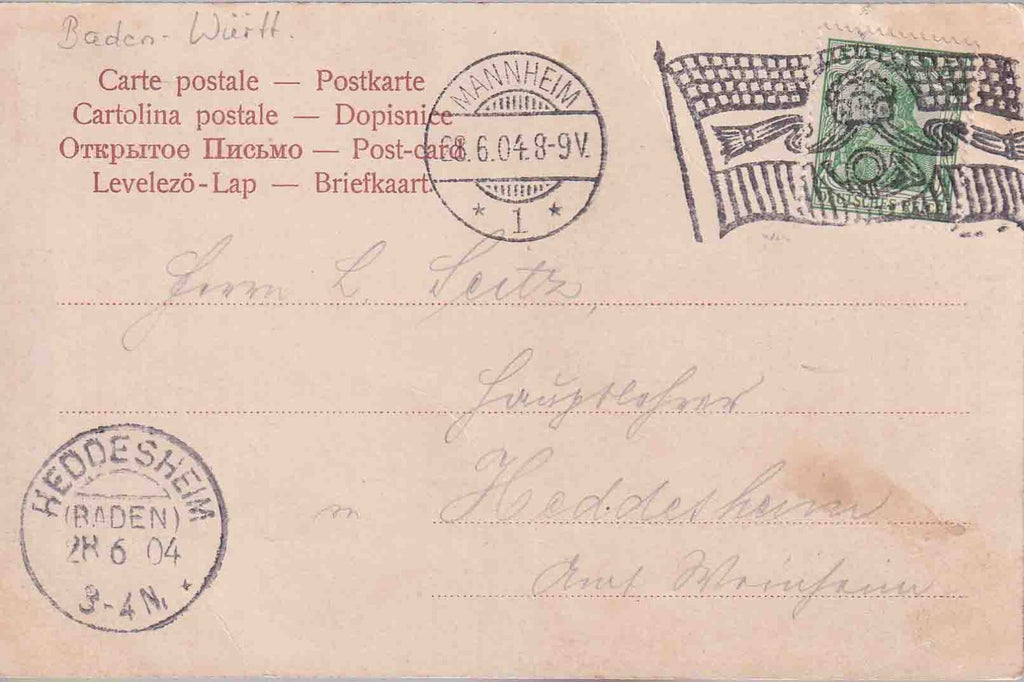 Baden-Württ.
Carte postale — Postkarte
Cartolina postale — Dopisnice
Открытое Письмо — Post-card
Levelező-Lap — Briefkaart.
MANNHEIM
28.6.04.8-9V.
* 1 *
DEUTSCHES REICH
Herrn L. Seitz,
Hauptlehrer
in Heddesheim
Amt Weinheim
HEDDESHEIM
(BADEN)
28 6 04
3-4 N. *